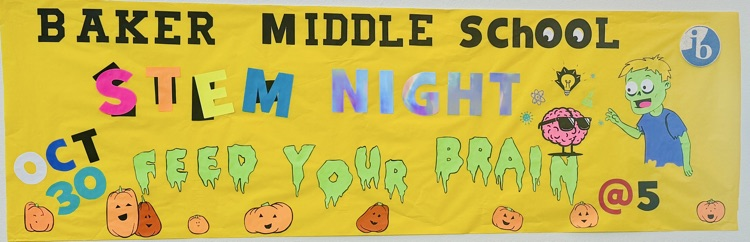 BAKER MIDDLE SChOOL
ib
STEM NIGHT
OCT
30
FEED YOUR BRAIN
@5